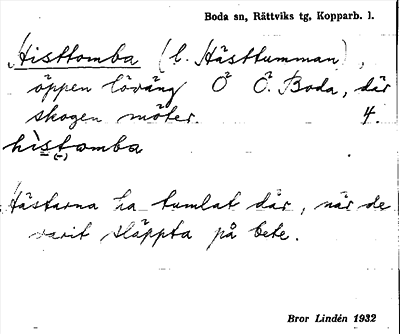 Boda sn, Rättviks tg, Kopparb. l.
Histtomba (l. Hästtumman),
öppen löväng Ö Ö. Boda, där
skogen möter. 4.
histomba
(-)
Hästarna ha tumlat där, när de
varit släppta på bete.
Bror Lindén 1932